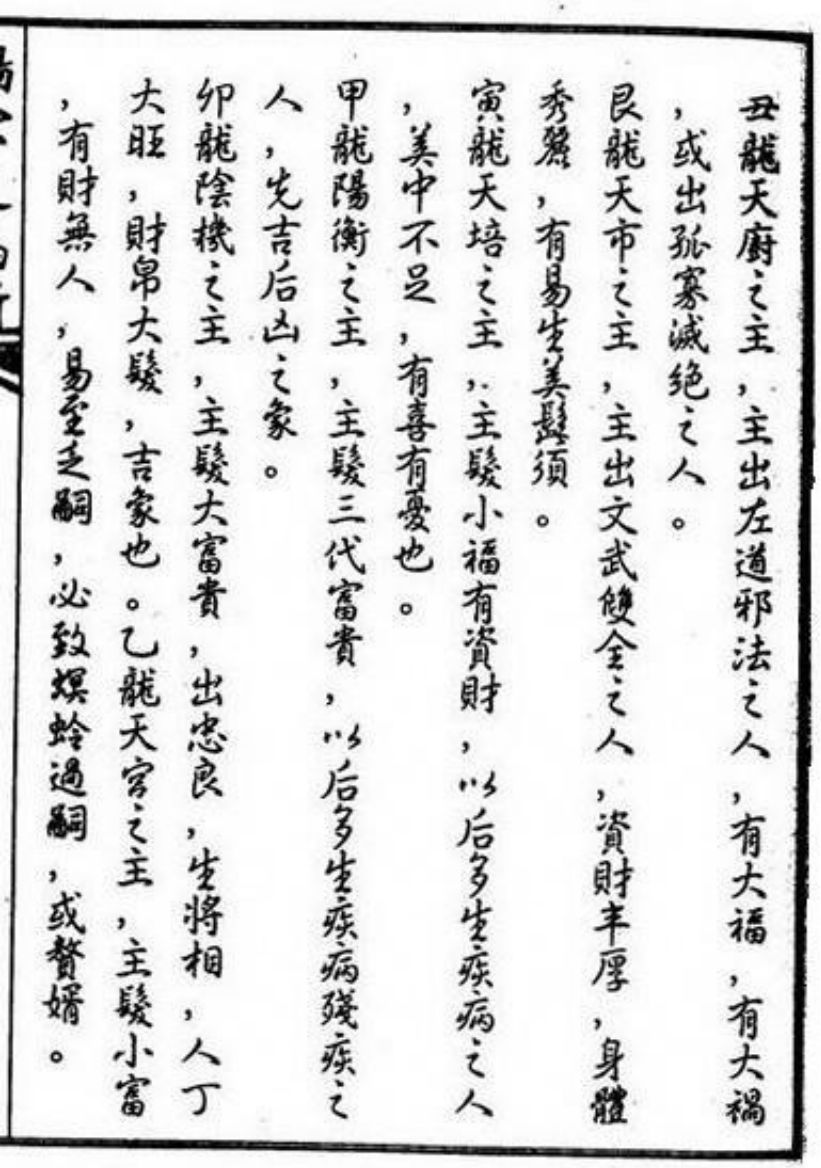 丑龍天廚之主，主出左道邪法之人，有大福，有大禍
，或出孤寡滅絕之人。
艮龍天市之主，主出文武雙全之人，資財丰厚，身體
秀麗，有易生美髯須。
寅龍天培之主，主髮小福有資財，以后多生疾病之人
，美中不足，有喜有憂也。
甲龍陽衡之主，主髮三代富貴，以后多生疾病殘疾之
人，先吉后凶之象。
卯龍陰機之主，主髮大富貴，出忠良，生將相，人丁
大旺，財帛大髮，吉象也。乙龍天官之主，主髮小富
，有財無人，易至乏嗣，必致螟蛉過嗣，或贅婿。